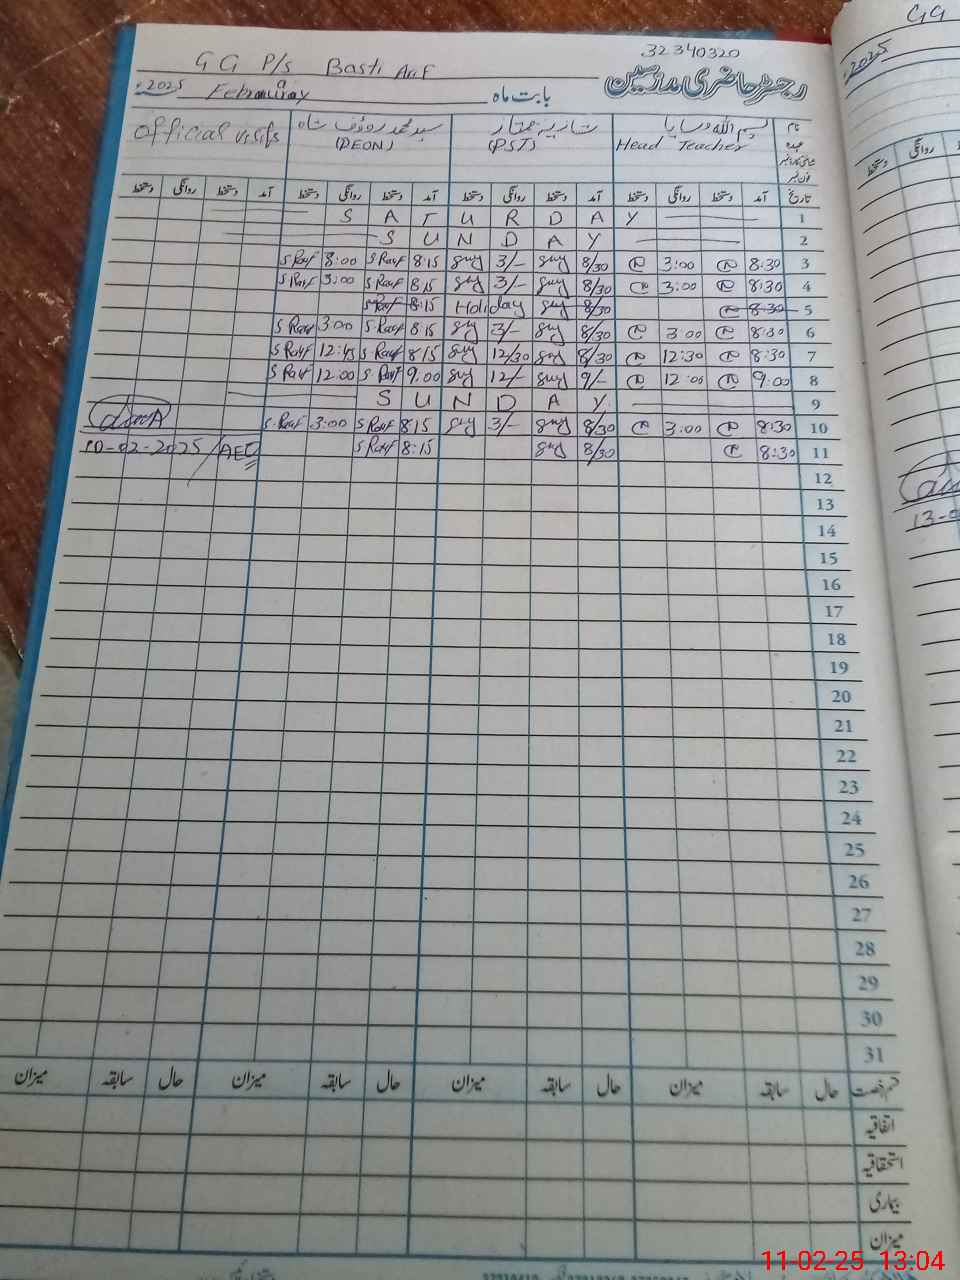 32340320
رجسٹر حاضری مدرسین
GG P/s Basti Arif
بابت ماہ February 2025
نام
عہدہ
بسم اللہ وسایا
Head Teacher
شازیہ ممتاز
(PST)
سید محمد رؤف شاہ
(DEON)
Official visits
تاریخ آمد دستخط روانگی دستخط آمد دستخط روانگی دستخط آمد دستخط روانگی دستخط آمد دستخط روانگی دستخط
S A T U R D A Y 1
S U N D A Y 2
S Rauf 8:00 S Rauf 8:15 3/- 8/30 3:00 8:30 3
S Rauf 3:00 S Rauf 8:15 3/- 8/30 3:00 8:30 4
S Rauf 8:15 Holiday 8/30 8:30 5
S Rauf 3:00 S Rauf 8:15 3/- 8/30 3:00 8:30 6
S Rauf 12:45 S Rauf 8:15 12/30 8/30 12:30 8:30 7
S Rauf 12:00 S Rauf 9:00 12/- 9/- 12:00 9:00 8
S U N D A Y 9
S Rauf 3:00 S Rauf 8:15 3/- 8/30 3:00 8:30 10
10-02-2025/AEO S Rauf 8:15 8/30 8:30 11
12
13
14
15
16
17
18
19
20
21
22
23
24
25
26
27
28
29
30
31
قسم رخصت حال سابقہ میزان حال سابقہ میزان حال سابقہ میزان حال سابقہ میزان
اتفاقیہ
استحقاقیہ
بیماری
میزان
GG
2025
دستخط روانگی
13-0
11-02-25 13:04